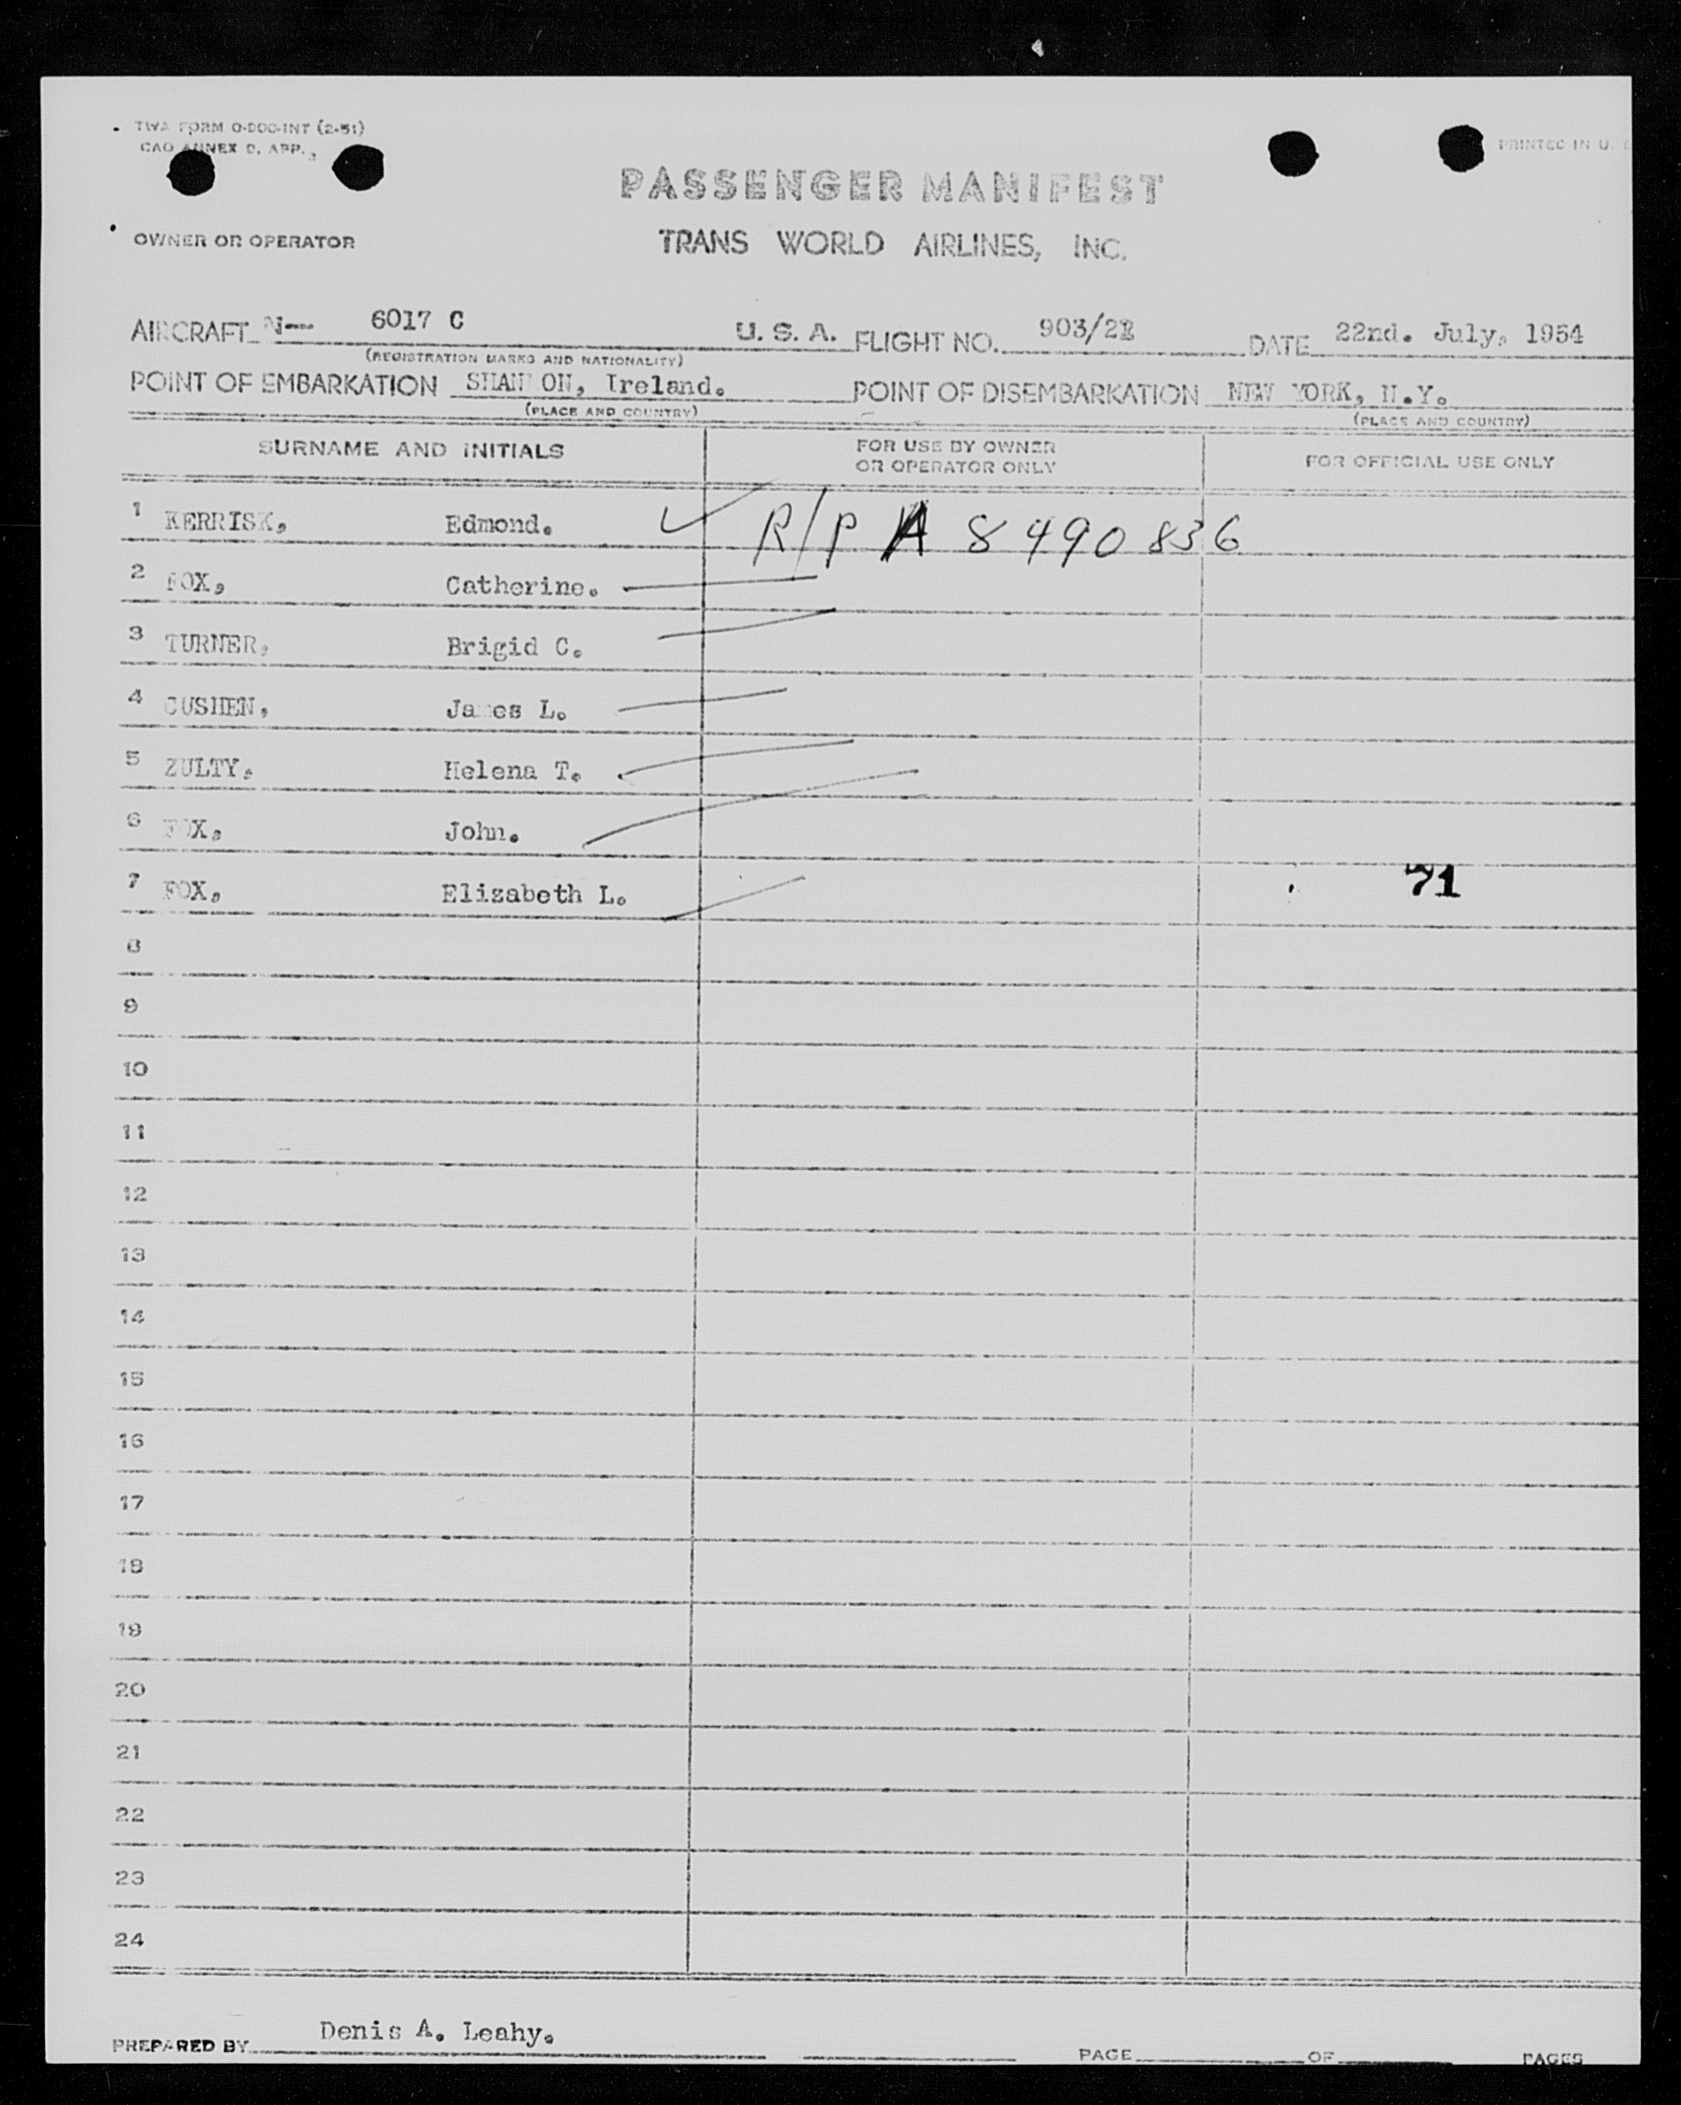 TWA FORM O-DOC-INT (2-51)
CAO ANNEX D, APP. 3
PRINTED IN U.
PASSENGER MANIFEST
OWNER OR OPERATOR
TRANS WORLD AIRLINES, INC.
AIRCRAFT N-- 6017 C U. S. A. FLIGHT NO. 903/22 DATE 22nd. July, 1954
(REGISTRATION MARKS AND NATIONALITY)
POINT OF EMBARKATION SHANNON, Ireland. POINT OF DISEMBARKATION NEW YORK, N.Y.
(PLACE AND COUNTRY) (PLACE AND COUNTRY)
SURNAME AND INITIALS FOR USE BY OWNER OR OPERATOR ONLY FOR OFFICIAL USE ONLY
1 KERRISK, Edmond. R/P A 8490836
2 FOX, Catherine.
3 TURNER, Brigid C.
4 CUSHEN, James L.
5 ZULTY, Helena T.
6 FOX, John.
7 FOX, Elizabeth L. 71
8
9
10
11
12
13
14
15
16
17
18
19
20
21
22
23
24
PREPARED BY Denis A. Leahy. PAGE OF PAGES